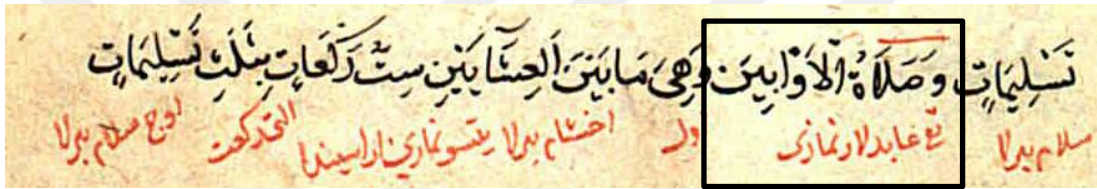 تَسْلِيمَاتٍ وَصَلَاةُ الْاَوَّابِينَ وَهِىَ مَا بَيْنَ الْعِشَايَيْنِ سِتُّ رَكَعَاتٍ بِثَلَثِ تَسْلِيمَاتٍ
سلام بيرلا عابدلار نمازى اول اخشام بيرلا يتسو نمازى اراسيندا ركعت اوج سلام بيرلا